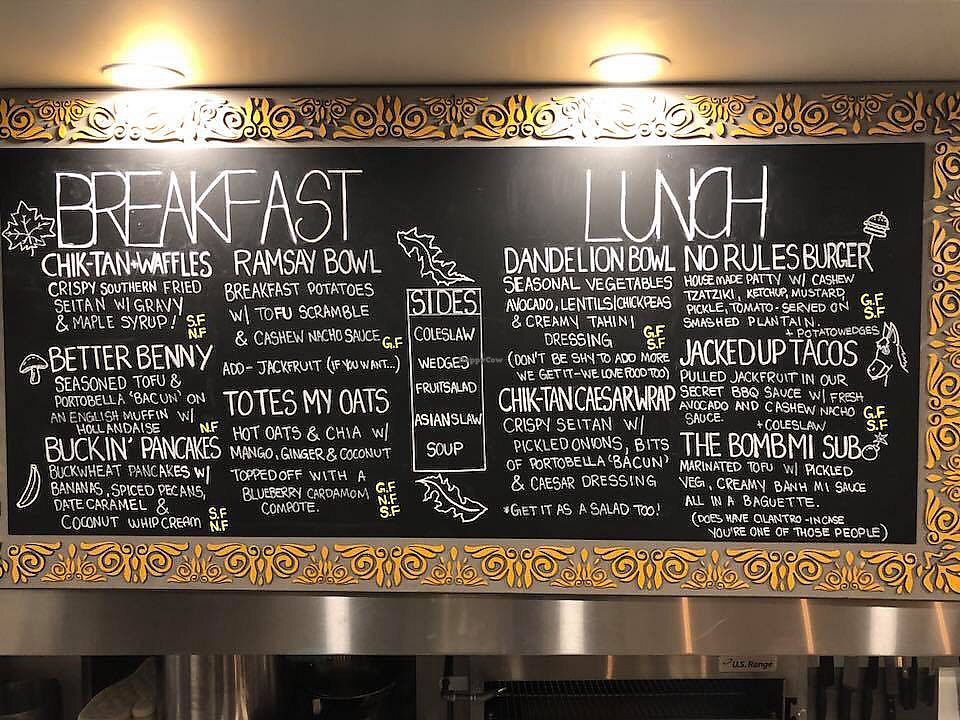 BREAKFAST
CHIK-TAN+WAFFLES
CRISPY SOUTHERN FRIED
SEITAN W/ GRAVY
& MAPLE SYRUP! S.F
N.F
BETTER BENNY
SEASONED TOFU &
PORTOBELLA 'BACUN' ON
AN ENGLISH MUFFIN W/
HOLLANDAISE N.F
BUCKIN' PANCAKES
BUCKWHEAT PANCAKES W/
BANANAS, SPICED PECANS,
DATE CARAMEL & S.F
COCONUT WHIP CREAM N.F
RAMSAY BOWL
BREAKFAST POTATOES
W/ TOFU SCRAMBLE
& CASHEW NACHO SAUCE G.F
ADD - JACKFRUIT (IF YOU WANT...)
TOTES MY OATS
HOT OATS & CHIA W/
MANGO, GINGER & COCONUT
TOPPED OFF WITH A
BLUEBERRY CARDAMOM G.F
COMPOTE. N.F
S.F
SIDES
COLESLAW
WEDGES
FRUITSALAD
ASIANSLAW
SOUP
HappyCow
LUNCH
DANDELION BOWL
SEASONAL VEGETABLES
AVOCADO, LENTILS/CHICKPEAS
& CREAMY TAHINI G.F
DRESSING S.F
(DON'T BE SHY TO ADD MORE
WE GET IT - WE LOVE FOOD TOO)
CHIK-TAN CAESAR WRAP
CRISPY SEITAN W/
PICKLED ONIONS, BITS
OF PORTOBELLA 'BACUN'
& CAESAR DRESSING
*GET IT AS A SALAD TOO!
NO RULES BURGER
HOUSE MADE PATTY W/ CASHEW
TZATZIKI, KETCHUP, MUSTARD, G.F
PICKLE, TOMATO - SERVED ON S.F
SMASHED PLANTAIN.
+ POTATO WEDGES
JACKED UP TACOS
PULLED JACKFRUIT IN OUR
SECRET BBQ SAUCE W/ FRESH
AVOCADO AND CASHEW NACHO G.F
SAUCE. + COLESLAW S.F
THE BOMBMI SUB
MARINATED TOFU W/ PICKLED
VEG, CREAMY BANH MI SAUCE
ALL IN A BAGUETTE.
(DOES HAVE CILANTRO - INCASE
YOU'RE ONE OF THOSE PEOPLE)
U.S. Range